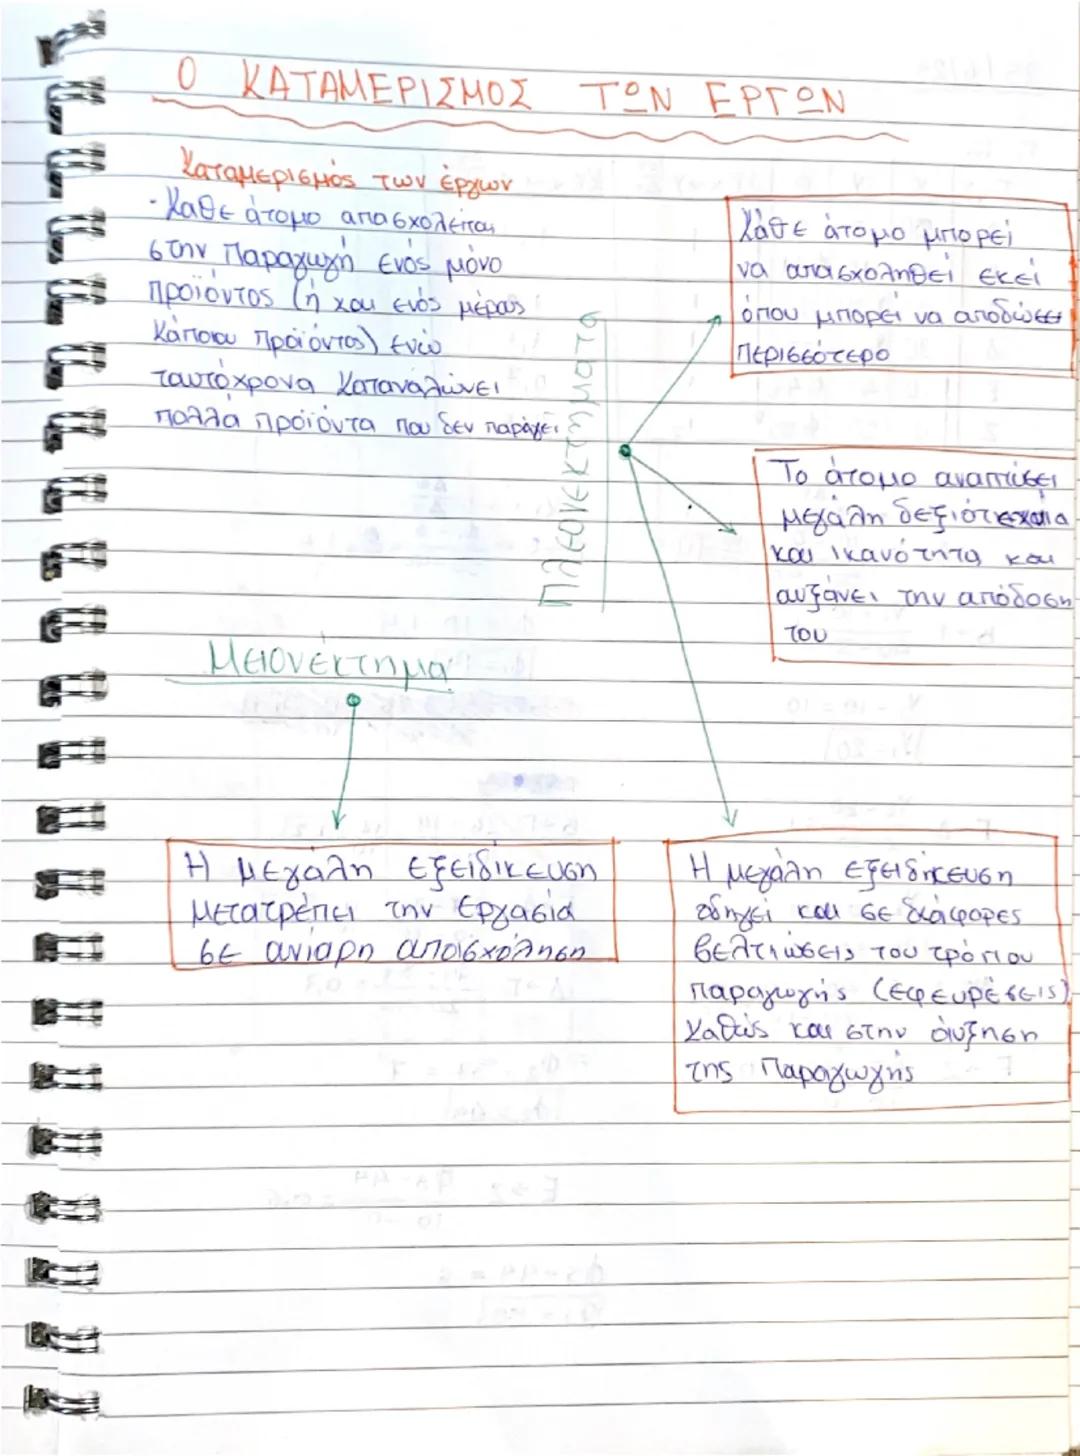 Ο ΚΑΤΑΜΕΡΙΣΜΟΣ ΤΩΝ ΕΡΓΩΝ
Καταμερισμός των έργων
· Καθε άτομο απασχολείται
στην Παραγωγή ενός μόνο
προϊόντος (ή και ενός μέρους
κάποιου προϊόντος) ενώ
ταυτόχρονα καταναλώνει
πολλά προϊόντα που δεν παράγει
Πλεονεκτήματα
Κάθε άτομο μπορεί
να απασχοληθεί εκεί
όπου μπορεί να αποδώσει
περισσότερο
Το άτομο αναπτύσει
μεγάλη δεξιότεχνία
και ικανότητα και
αυξάνει την απόδοση
του
Μειονέκτημα
Η μεγάλη εξειδίκευση
μετατρέπει την εργασία
σε ανιαρη απασχόληση
Η μεγάλη εξειδίκευση
οδηγεί και σε διάφορες
βελτιώσεις του τρόπου
παραγωγής (εφευρέσεις)
καθώς και στην αύξηση
της Παραγωγής